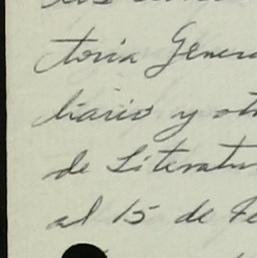 toria Genera
liario y ot
de Literatu
al 15 de Fe